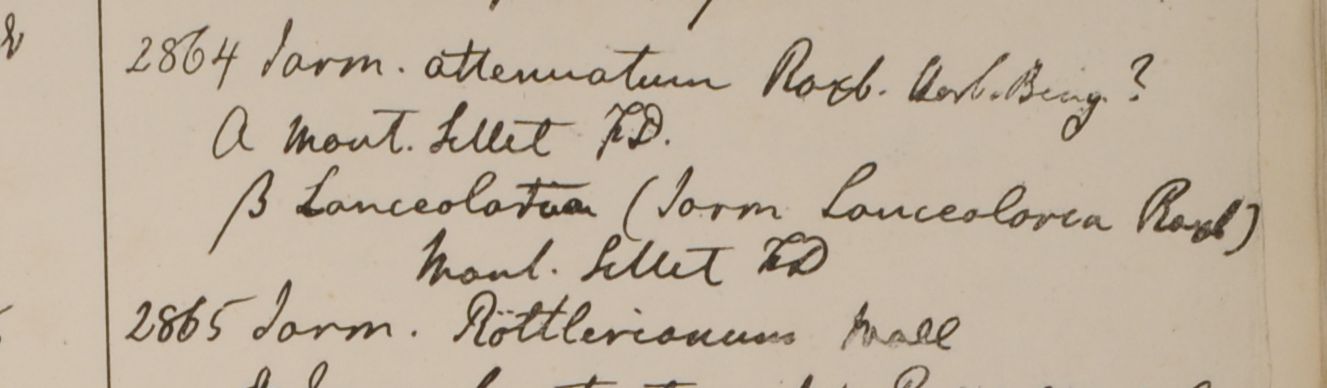 2864 Jasm. attenuatum Roxb. Herb. Beng. ?
A Mont. Sillet FD.
β Lanceolatum (Jasm Lanceolaria Roxb)
Mont. Sillet FD
2865 Jasm. Röttlerianum Wall